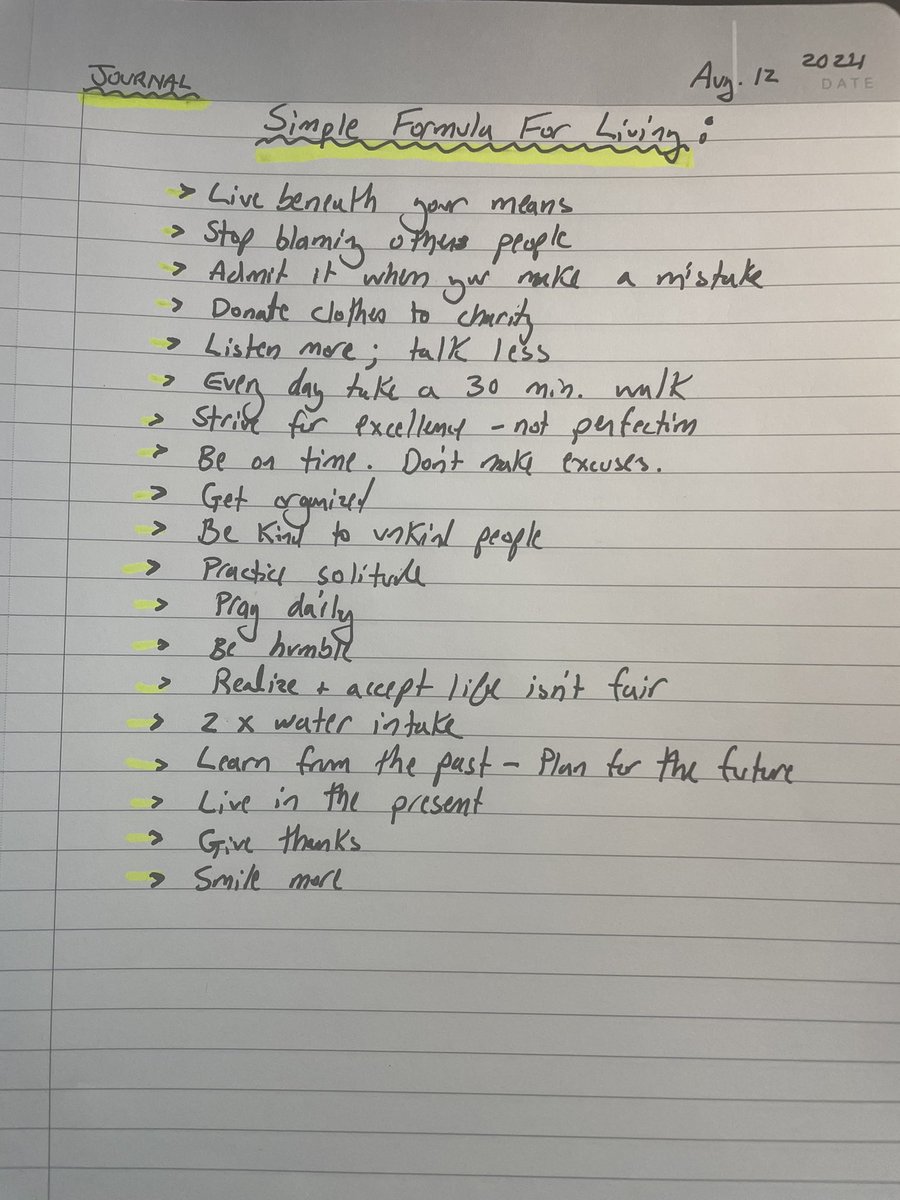 JOURNAL
Aug. 12 2024
DATE
Simple Formula For Living:
→ Live beneath your means
→ Stop blaming other people
→ Admit it when you make a mistake
→ Donate clothes to charity
→ Listen more; talk less
→ Every day take a 30 min. walk
→ Strive for excellency - not perfection
→ Be on time. Don't make excuses.
→ Get organized
→ Be Kind to unkind people
→ Practice solitude
→ Pray daily
→ Be humble
→ Realize + accept life isn't fair
→ 2 x water intake
→ Learn from the past - Plan for the future
→ Live in the present
→ Give thanks
→ Smile more